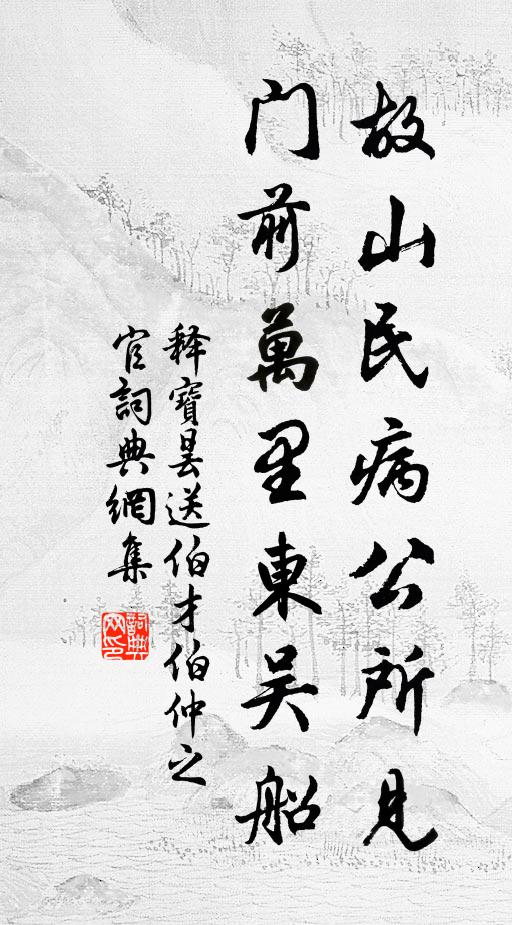 故山民病公所見
门前萬里東吴船
释寶曇送伯才伯仲之
官詞典網集
詞典网印